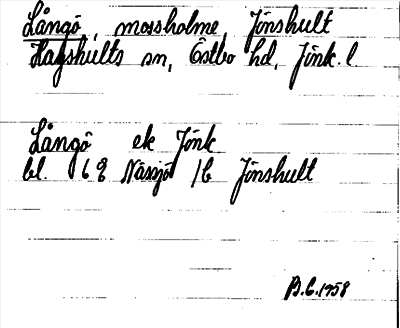 Långö, mossholme Jönshult
Hagshults sn, Östbo hd, Jönk. l
Långö ek Jönk
bl. 6g Nässjö 16 Jönshult
B.C. 1958